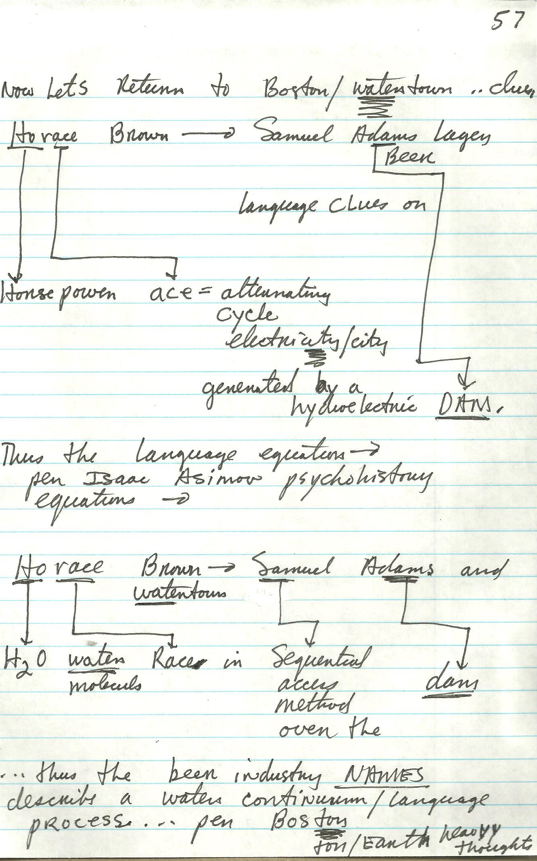 57
Now Lets Return to Boston/watertown .. clues
Horace Brown → Samuel Adams Lager
Beer
language clues on
Horse power ace = alternating
cycle
electricity/city
generated by a
hydroelectric DAM.
Thus the language equation →
per Isaac Asimov psychohistory
equations →
Horace Brown → Samuel Adams and
watertown
H2O water Race in Sequential dam
molecule access
method
over the
... thus the beer industry NAMES
describe a water continuum/language
process... per Boston
ton/Earth heavy
thoughts